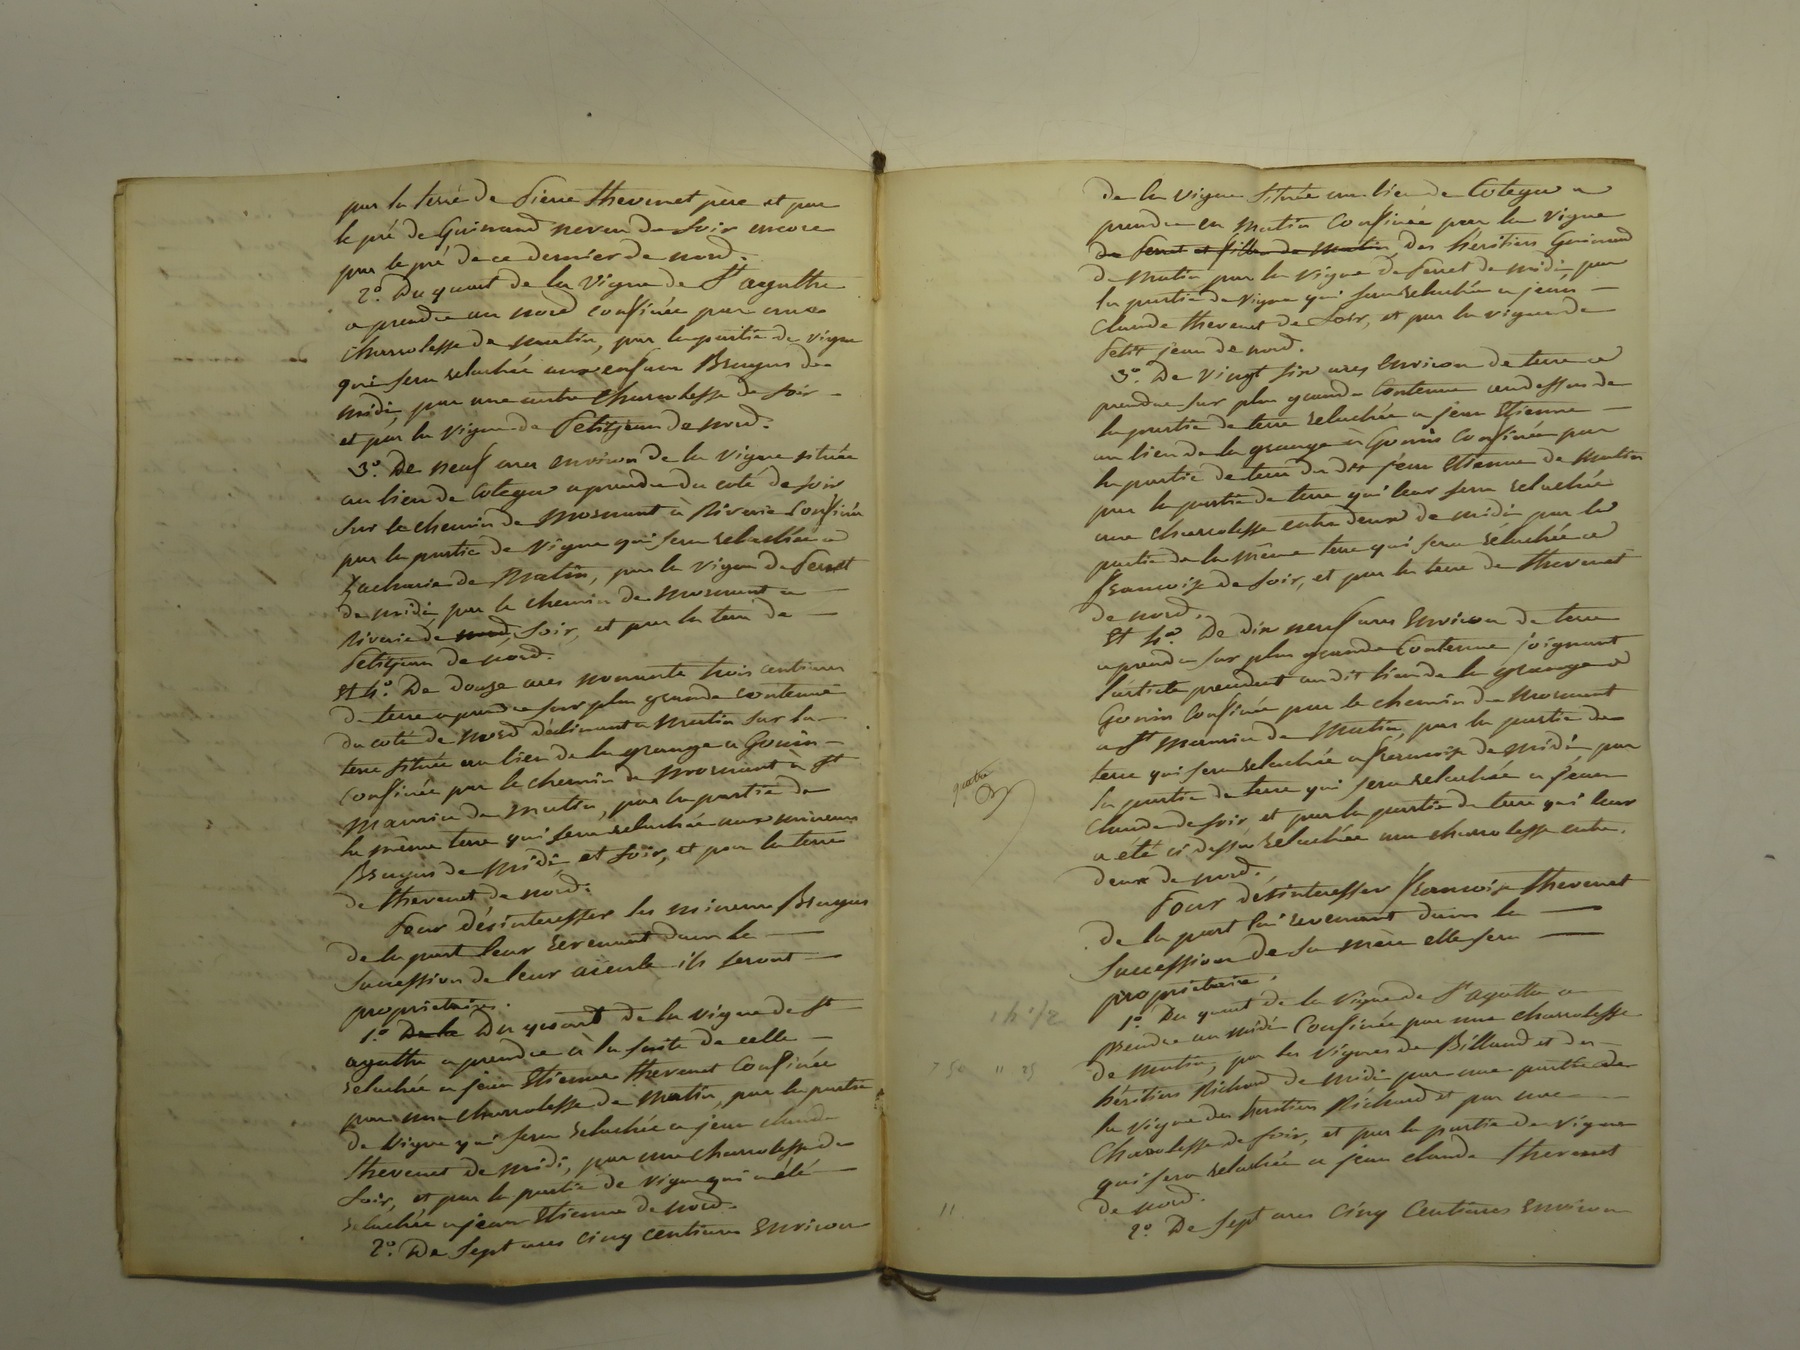 par la terre de Pierre thevenet père et par
le pré de Guinand neveu de soir encore
par le pré de ce dernier de nord.
2º. Du quart de la vigne de St agathe
a prendre au nord confinée par une
charrolesse de matin, par la partie de vigne
qui sera relachée aux enfans Bruyas de
midi, par une autre charrolesse de soir –
et par la vigne de Petitjean de nord.
3º. De neuf ares environ de la vigne située
au lieu de Coteyer a prendre du coté de soir
sur le chemin de Mornant à Riverie confinée
par la partie de vigne qui sera relachée a
Zacharie de Matin, par la vigne de Ferret
de midi, par le chemin de Mornant a –
Riverie de nord, soir, et par la terre de –
Petitjean de nord.
Et 4º. De douze ares nonante trois centiares
de terre a prendre sur plus grande contenue
du coté de nord déclinant a matin sur la –
terre située au lieu de la grange a Gonin –
confinée par le chemin de Mornant a St
Maurice de matin, par la partie de
la même terre qui sera relachée aux mineurs
Bruyas de midi et soir, et par la terre
de thevenet de nord.
Pour désinteresser les mineurs Bruyas
de la part leur revenant dans la —
succession de leur aieule ils seront —
proprietaires.
1º. De la Du quart de la vigne de St –
agathe a prendre à la suite de celle –
relachée a jean Etienne thevenet confinée
par une charrolesse de matin, par la partie
de vigne qui sera relachée a jean claude
thevenet de midi, par une charrolesse de
soir, et par la partie de vigne qui a été —
relachée a jean Etienne de nord.
2º. De sept ares cinq centiares environ
de la vigne située au lieu de Coteyer a
prendre en matin confinée par la vigne
de Ferret et fille de matin des héritiers Guinand
de matin par la vigne de Ferret de midi, par
la partie de vigne qui sera relachée a jean –
Claude thevenet de soir, et par la vigne de
Petit jean de nord.
3º. De vingt six ares environ de terre a
prendre sur plus grande contenue au dessus de
la partie de terre relachée a jean Etienne —
au lieu de la grange à Gonin confinée par
la partie de terre du dit jean Etienne de matin
par la partie de terre qui leur sera relachée
une charrolesse entre deux de midi par la
partie de la même terre qui sera relachée a
francoise de soir, et par la terre de thevenet
de nord.
Et 4º. De dix neuf ares environ de terre
a prendre sur plus grande contenue joignant
l'article precedent au dit lieu de la grange a
Gonin confinée par le chemin de Mornant
a St Maurice de Matin, par la partie de
terre qui sera relachée a francoise de midi par
la partie de terre qui sera relachée a jean
Claude de soir et par la partie de terre qui leur
a été ci dessus relachée une charrolesse entre
deux de nord.
quatre
Pour désinteresser francoise thevenet
de la part lui revenant dans la —
succession de sa mère elle sera —
proprietaire.
1º. Du quart de la vigne de St agathe a —
prendre au midi confinée par une charrolesse
de matin, par les vignes de Billaud et des –
héritiers Richard de midi par une partie de
la vigne des heritiers Richard et par une –
charrolesse de soir, et par la partie de vigne
qui sera relachée a jean claude thevenet
de nord.
2º. De sept ares cinq centiares environ
11